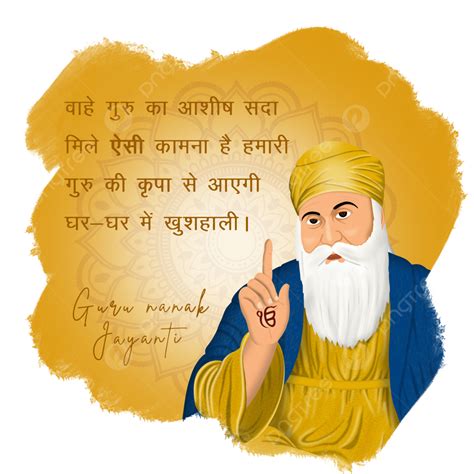 वाहे गुरु का आशीष सदा
मिले ऐसी कामना है हमारी
गुरु की कृपा से आएगी
घर-घर में खुशहाली।
Guru nanak
Jayanti
ੴ